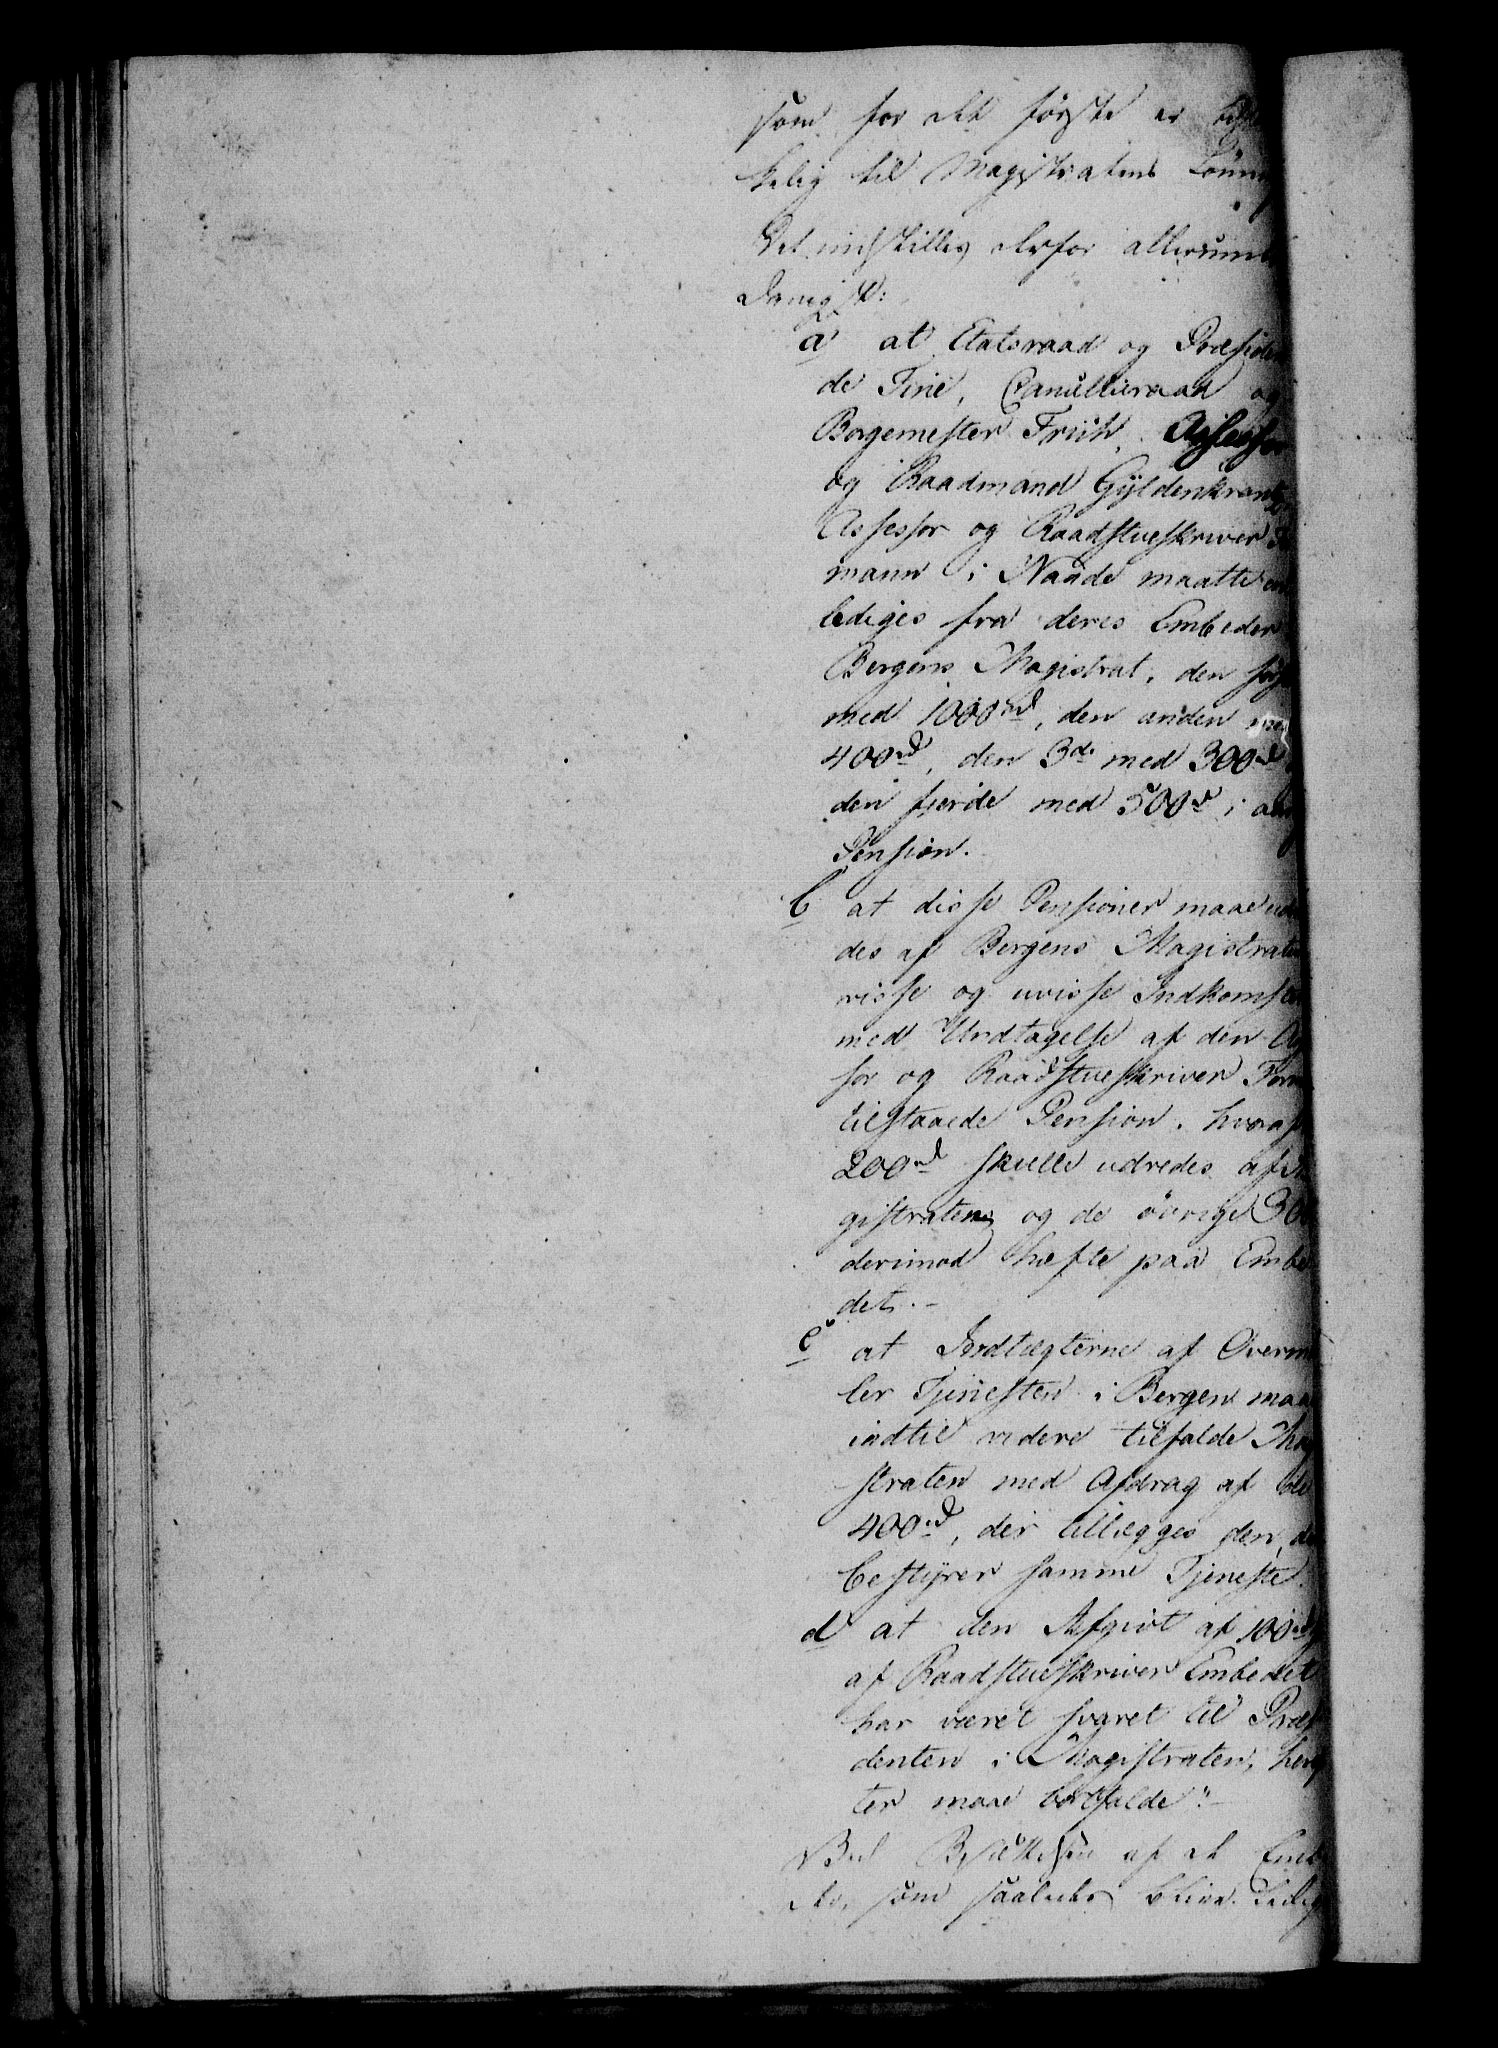 som for det første er
kelig til Magistratens Lønni
Det indstilles derfor allerund
danigst:
a at Etatsraad og Præsiden
de Fine, Cancellieraad og
Borgemester Friih, Assessor
og Raadmand Gyldenkrantz
Assessor og Raadstueskriver
mann i Naade maatte ent
lediges fra deres Embeder
Bergens Magistrat, den før
med 1000rd, den anden med
400rd, den 3die med 300rd
den fjerde med 500rd i aar
Pension.
b at disse Pensioner maae ud
des af Bergens Magistrats
visse og uvisse Indkomster
med Undtagelse af den As
sor og Raadstueskriver Form
tilstaaede Pension, hvoraf
200rd skulle udredes af
gistraten og de øvrige 300
derimod hæfte paa Embe
det.-
c at Indtægterne af Overm
ler Tjenesten i Bergen maa
indtil videre tilfalde Ma
straten med Afdrag af
400rd, der tillægges den, d
bestyrer samme Tjeneste.
d at den Afgivt af 100rd
af Raadstueskriver Embedet
har været svaret til Præsi
denten i Magistraten, heref
ter maae bortfalde".-
Ved Besættelsen af de Emb
der, som saaledes blive ledig